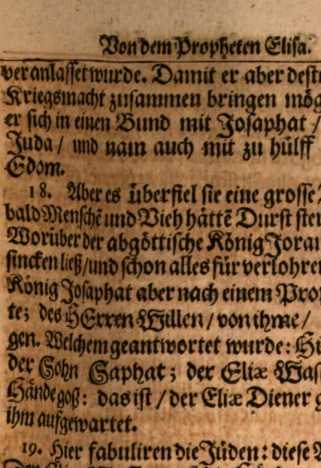 Von dem Propheten Elisa.
veranlasset wurde. Damit er aber dest
Kriegsmacht zusammen bringen mög
er sich in einen Bund mit Josaphat /
Juda / und nam auch mit zu hülff
Edom.
18. Aber es überfiel sie eine grosse
bald Menschẽ und Vieh hättẽ Durst ster
Worüber der abgöttische König Jora
sincken ließ / und schon alles für verlohren
König Josaphat aber nach einem Pro
te; des HErren Willen / von ihme /
gen. Welchem geantwortet wurde: Hi
der Sohn Saphat; der Eliæ Was
Hände goß: das ist / der Eliæ Diener g
ihm aufgewartet.
19. Hier fabuliren die Jüden: diese